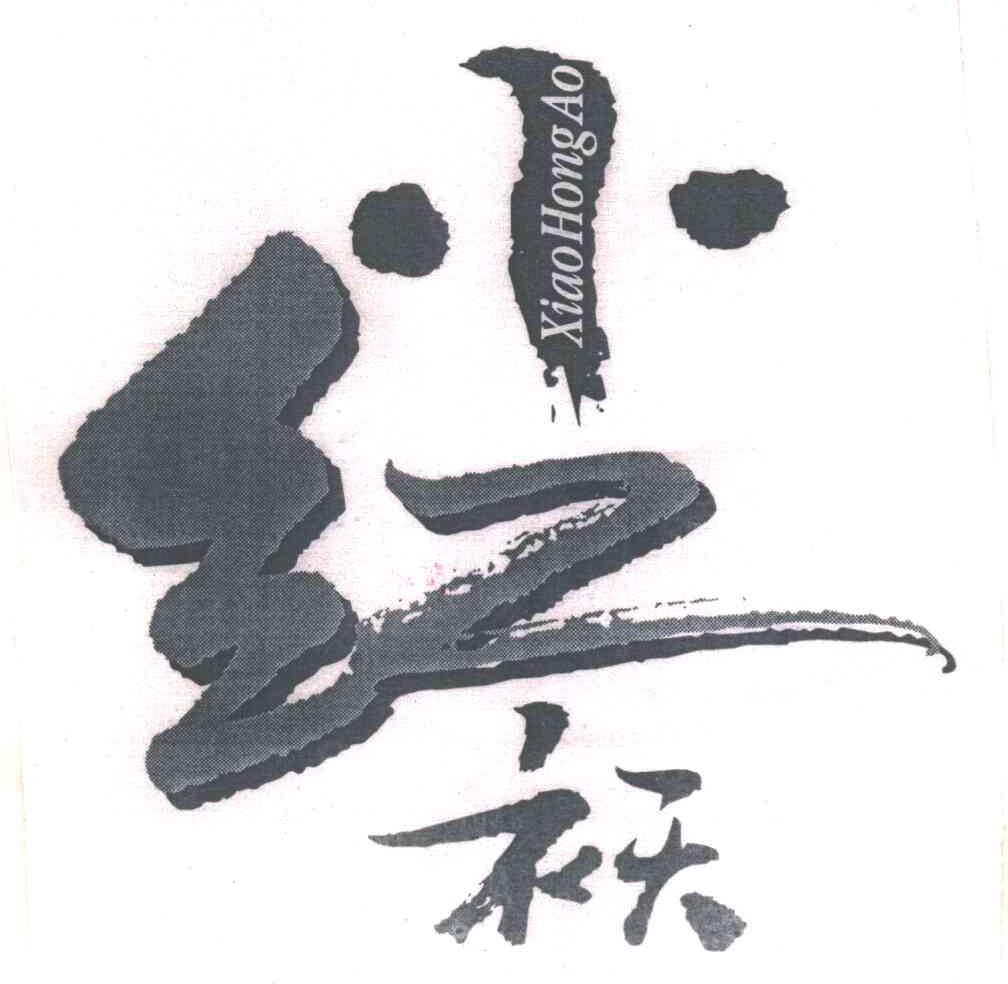 小红袄
XiaoHongAo